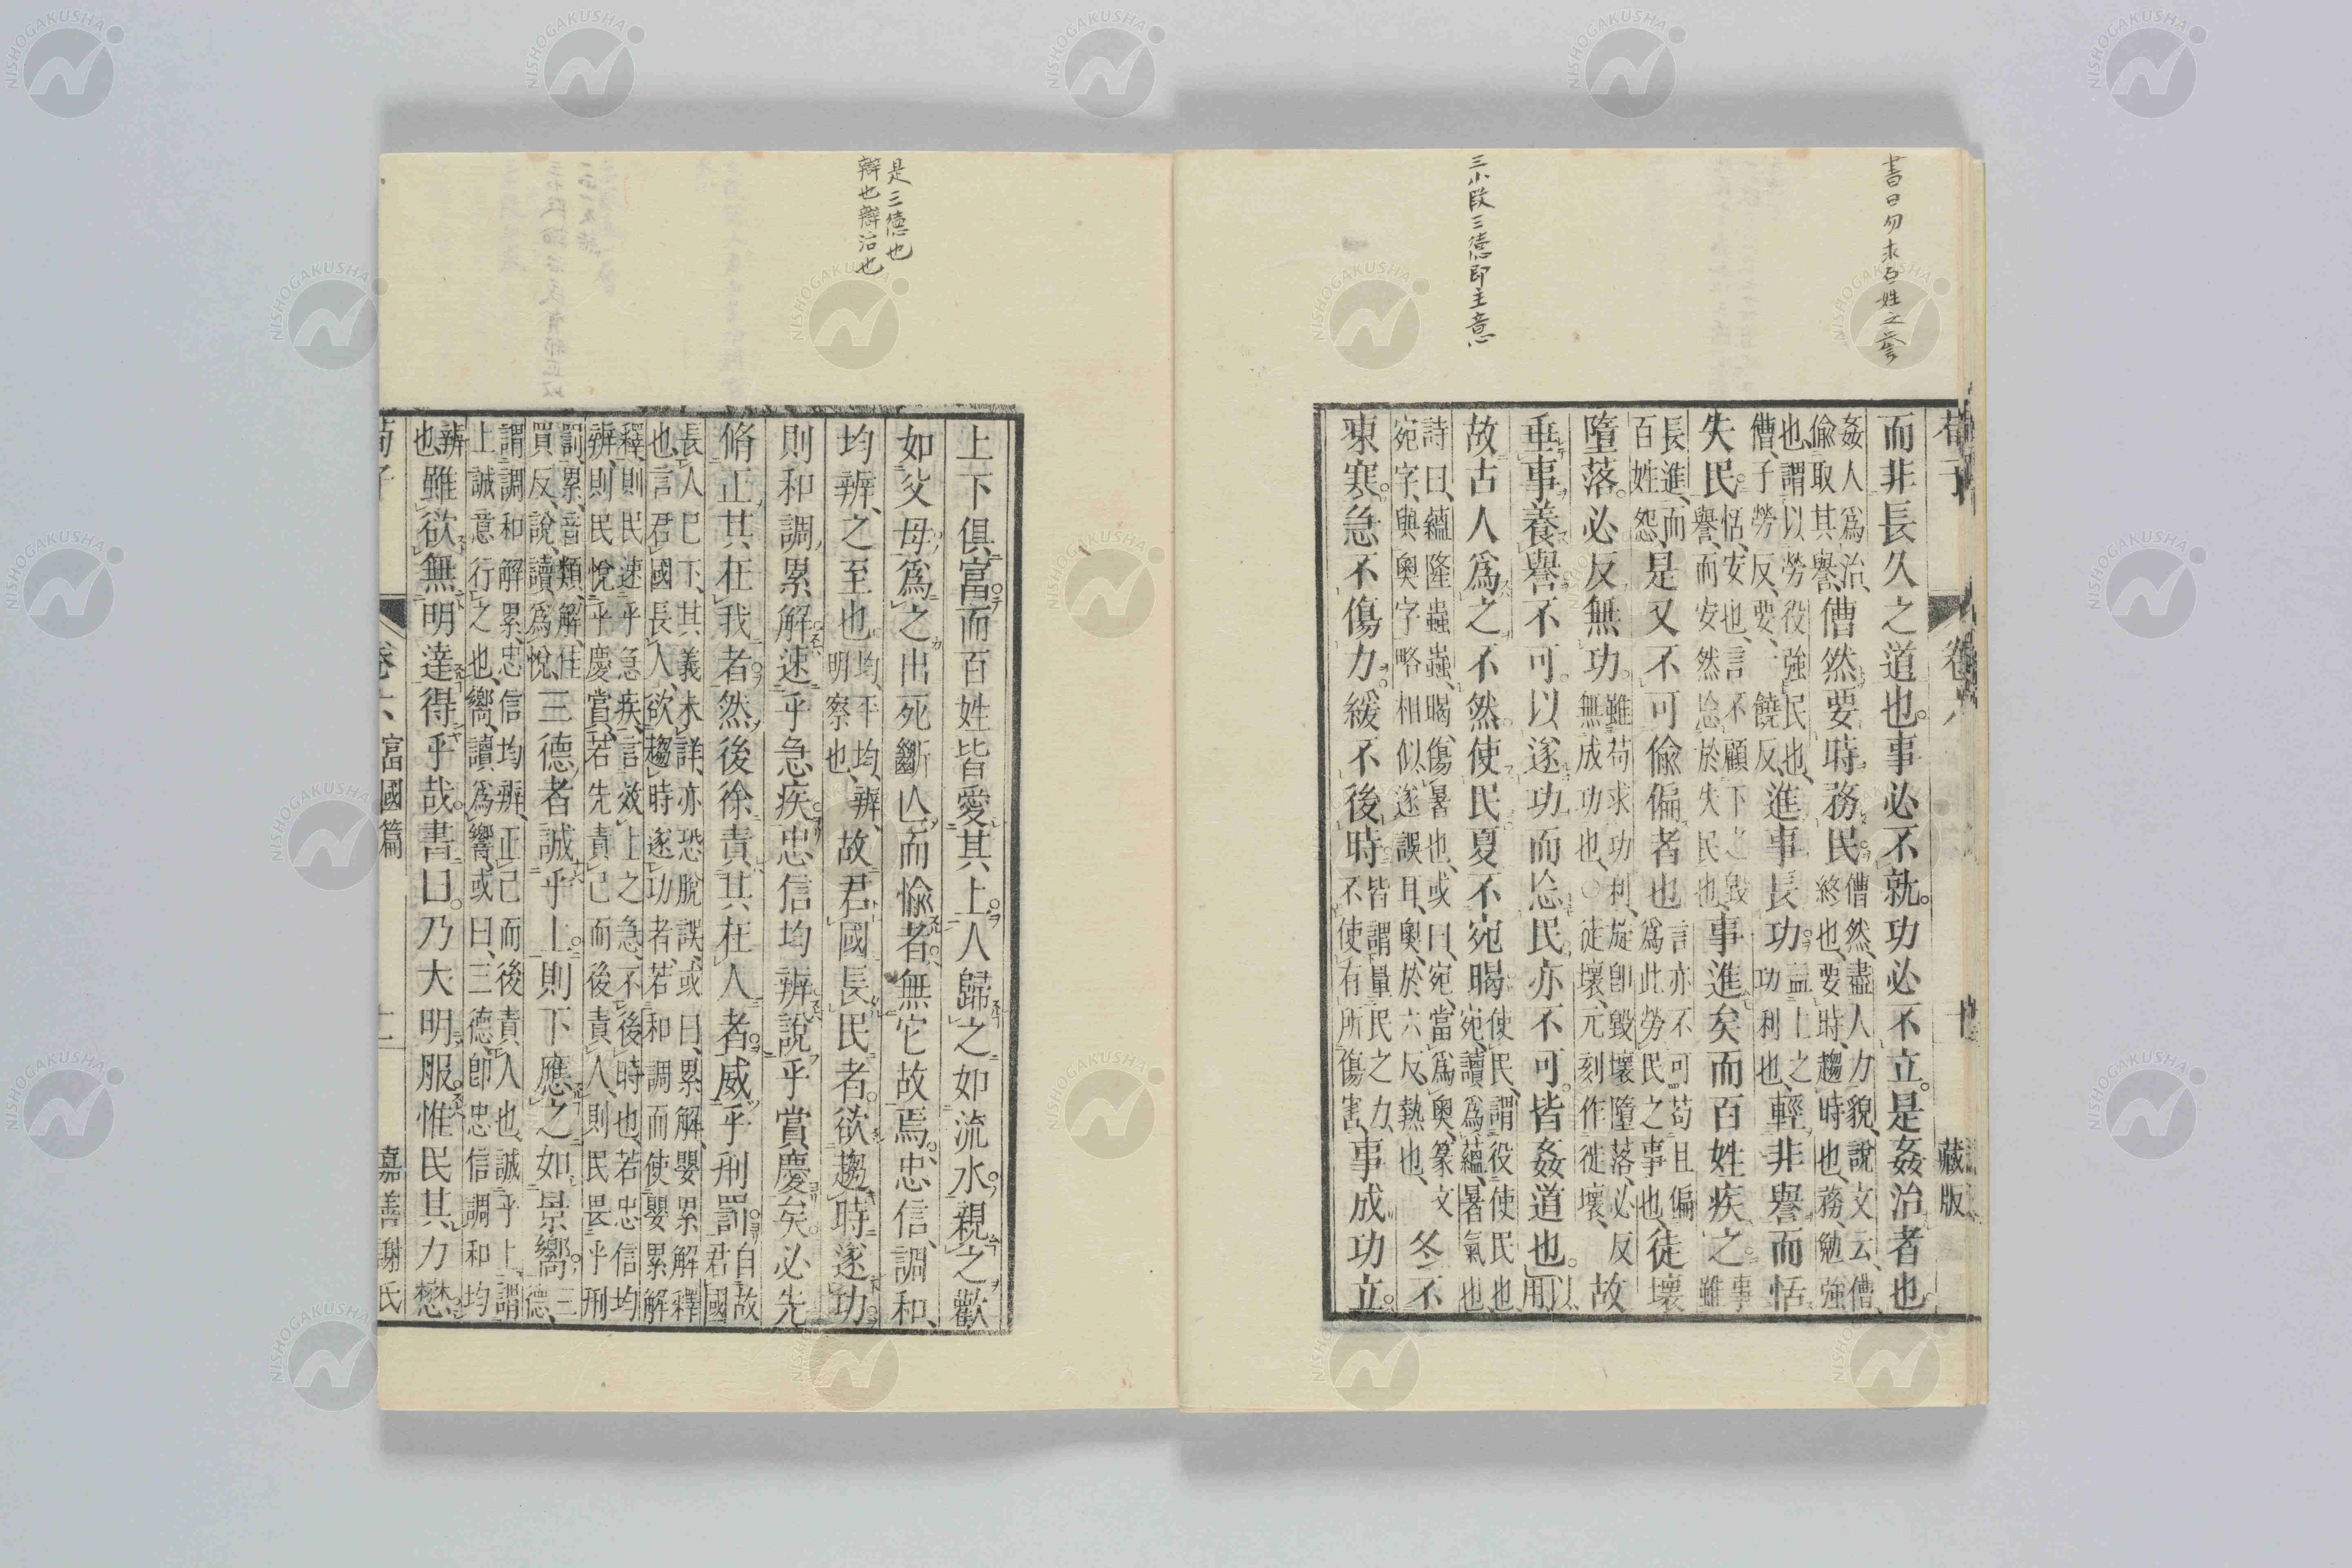 書曰勿求百姓之譽
三小段三德即主意
荀子
卷六
藏版
而非長久之道也。事必不就。功必不立。是姦治者也。
姦人爲治、偸取其譽、
僡然要時務民。
僡然、盡人力貌、說文云、僡、終也、要時、趨時也、務、勉強
也、謂以勞役強民也、僡、子勞反、要、一饒反、
進事長功。
益上之功利也、
輕非譽而恬
失民。
恬、安也、言不顧下之毀譽、而安然忩於失民也、
事進矣而百姓疾之。
事雖
長進、而百姓怨、
是又不可偸偏者也
言亦不可苟且偏爲此勞民之事也、
徒壞
墮落。必反無功。
雖苟求功利、旋卽毀壞墮落、必反無成功也、○徒壞、元刻作徙壞、
故
垂事養譽不可。以遂功而忩民。亦不可。皆姦道也。
以用
故古人爲之不然。使民夏不宛暍
使民、謂役使民也、宛、讀爲蘊、暑氣也、
詩曰、蘊隆蟲蟲、暍、傷暑也、或曰、宛、當爲奧、篆文宛字、與奧字略相似、遂誤耳、奧、於六反、熱也、
冬不
凍寒。急不傷力。緩不後時。
皆謂量民之力、不使有所傷害、
事成功立。
是三德也
辯也辯治也
上下俱富而百姓皆愛其上。人歸之如流水。親之歡
如父母。爲之出死斷亾而愉者。無它故焉。忠信、調和、
均辨、之至也。
均、平均、辨、明察也、
故君國長民者。欲趨時遂功。
則和調累解。速乎急疾。忠信均辨。說乎賞慶矣。必先
脩正其在我者。然後徐責其在人者。威乎刑罰。
自故君國
長人巳下、其義未詳、亦恐脫誤、或曰、累解、嬰累解釋
也、言君國長人、欲趨時遂功者、若和調而使嬰累解
釋、則民速乎急疾、言效上之急、不後時也、若忠信均
辨、則民悅乎慶賞、若先責己而後責人、則民畏乎刑
罰、累、音類、解、佳買反、說、讀爲悅、
三德者誠乎上。則下應之如景嚮。
三德、
謂調和解累、忠信均辨、正己而後責人也、誠乎上、謂
上誠意行之也、嚮、讀爲響、或曰、三德、卽忠信調和均
辨也、
雖欲無明達得乎哉。書曰。乃大明服。惟民其力懋。
荀子
卷六
富國篇
十一
嘉善謝氏